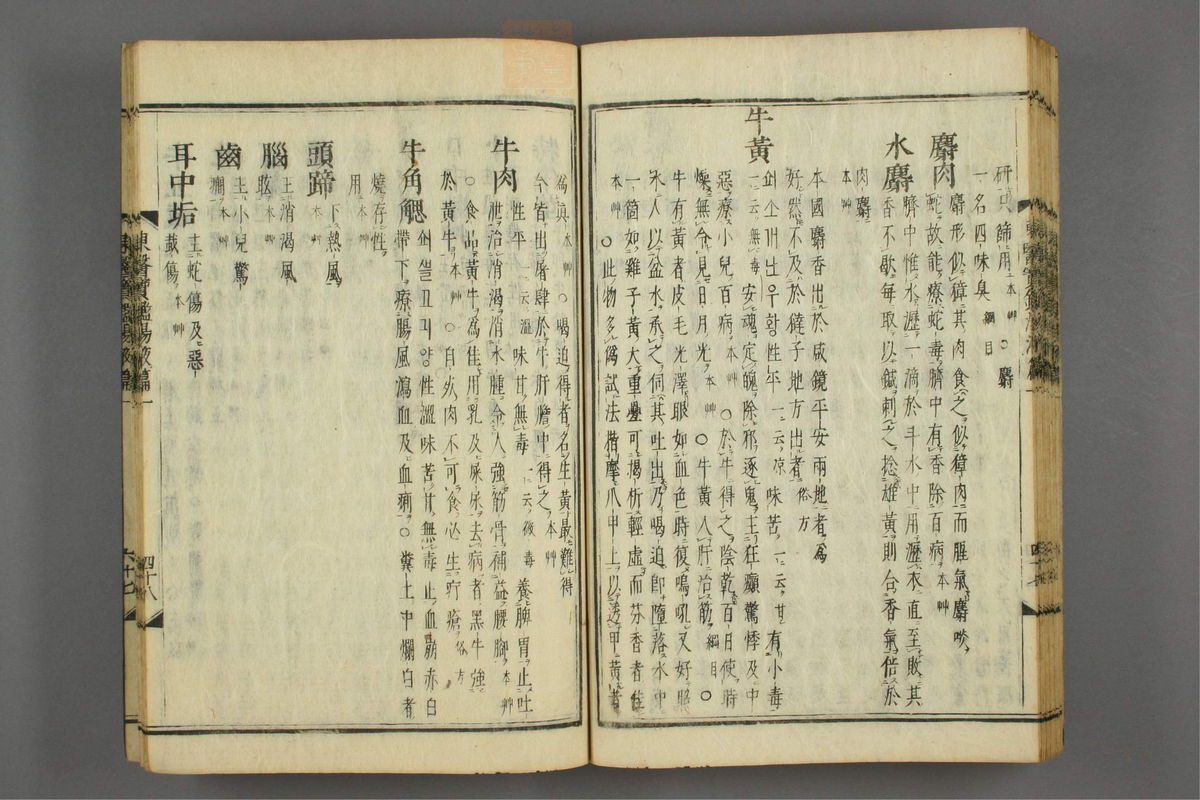 研只篩用本艸○麝
一名四味臭綱目
麝肉
麝形似獐其肉食之似獐肉而腥氣麝啖
蛇故能療蛇毒臍中有香除百病本艸
水麝
臍中惟水瀝一滴於斗水中用瀝衣直至敗其
香不歇每取以鍼刺之捻雄黃則合香氣倍於
肉麝
本艸
本國麝香出於咸鏡平安兩地者爲
好然不及於㺚子地方出者俗方
牛黃
쇠소개니우황性平一云凉味苦一云甘有小毒
一云無毒安魂定魄除邪逐鬼主狂癲驚悸及中
惡療小兒百病本艸○於牛得之陰乾百日使時
燥無令見日月光本艸○牛黃入肝治筋綱目○
牛有黃者皮毛光澤眼如血色時復鳴吼又好照
水人以盆水承之伺其吐出乃喝迫卽墮落水中
一箇如雞子黃大重疊可揭析輕虛而芬香者佳
本艸○此物多僞試法揩摩爪甲上以透甲黃者
爲眞本艸○喝迫得者名生黃最難得
今皆出屠肆於牛肝膽中得之本艸
牛肉
性平一云溫味甘無毒一云微毒養脾胃止吐
泄治消渴消水腫令人強筋骨補益腰脚本艸
○食品黃牛爲佳用乳及屎尿去病者黑牛強
於黃牛本艸○自死肉不可食必生疔瘡俗方
牛角䚡
쇠쓸고기양性溫味苦甘無毒止血崩赤白
帶下療腸風瀉血及血痢○糞土中爛白者
燒存性
用本艸
頭蹄
下熱風
本艸
腦
主消渴風
眩本艸
齒
主小兒驚
癎本艸
耳中垢
主蛇傷及惡
蛓傷本艸
東醫寶鑑湯液篇一
四十八
六十七